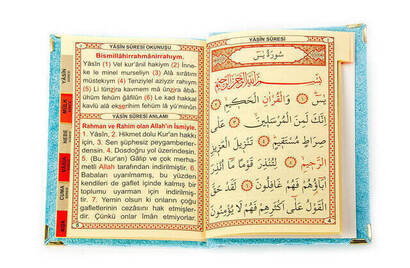 YÂSÎN SÛRESİ OKUNUŞU
Bismillâhirrahmânirrahıym.
Yâsîn (1) Vel kur'ânil hakiym (2) İnne-
ke le minel murseliyn (3) Alâ sırâtın
müstekıym (4) Tenziylel aziyzir rahıym
(5) Li tünzira kavmem mâ ünzira âbâ-
ühüm fehüm ğâfilûn (6) Le kad hakkal
kavlü alâ ekserihim fehüm lâ yü'minûn (7)
YÂSÎN SÛRESİ ANLAMI
Rahman ve Rahim olan Allah'ın İsmiyle.
1. Yâsîn, 2. Hikmet dolu Kur'an hakkı
için, 3. Sen şüphesiz peygamberler-
densin. 4. Dosdoğru yol üzerindesin.
5. (Bu Kur'an) Gâlip ve çok merha-
metli Allah tarafından indirilmiştir. 6.
Babaları uyarılmamış, bu yüzden
kendileri de gaflet içinde kalmış bir
toplumu uyarman için indirilmiş-
tir. 7. Yemin olsun ki onların çoğu
gafletlerinin cezasını hak etmişler-
dir. Çünkü onlar îmân etmiyorlar.
YÂSÎN
MÜLK
NEBE
CUMA
YÂSÎN SÛRESİ
سُورَةُ يٰسٓ
بِسْمِ اللّٰهِ الرَّحْمٰنِ الرَّحِيمِ
يٰسٓ ﴿١﴾ وَالْقُرْاٰنِ الْحَكِيمِ ﴿٢﴾
اِنَّكَ لَمِنَ الْمُرْسَلِينَ ﴿٣﴾ عَلٰى
صِرَاطٍ مُسْتَقِيمٍ ﴿٤﴾ تَنْزِيلَ الْعَزِيزِ
الرَّحِيمِ ﴿٥﴾ لِتُنْذِرَ قَوْمًا مَا اُنْذِرَ
اٰبَاؤُهُمْ فَهُمْ غَافِلُونَ ﴿٦﴾ لَقَدْ حَقَّ
الْقَوْلُ عَلٰى اَكْثَرِهِمْ فَهُمْ لَا يُؤْمِنُونَ